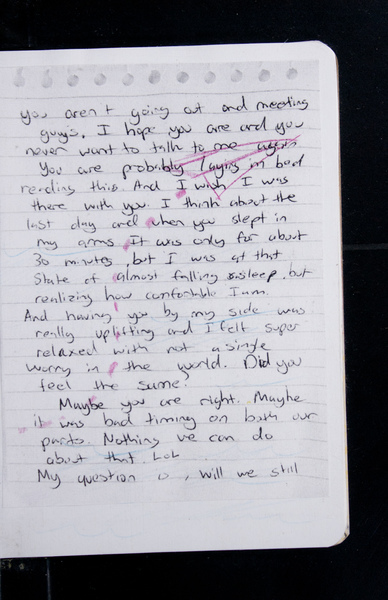 you aren't going out and meeting
guys. I hope you are and you
never want to talk to me again
You are probably laying in bed
reading this. And I wish I was
there with you. I think about the
last day and when you slept in
my arms. It was only for about
30 minutes, but I was at that
state of almost falling asleep, but
realizing how comfortable I am.
And having you by my side was
really uplifting and I felt super
relaxed with not a single
worry in the world. Did you
feel the same?
Maybe you are right. Maybe
it was bad timing on both our
parts. Nothing we can do
about that. LoL
My question is, will we still